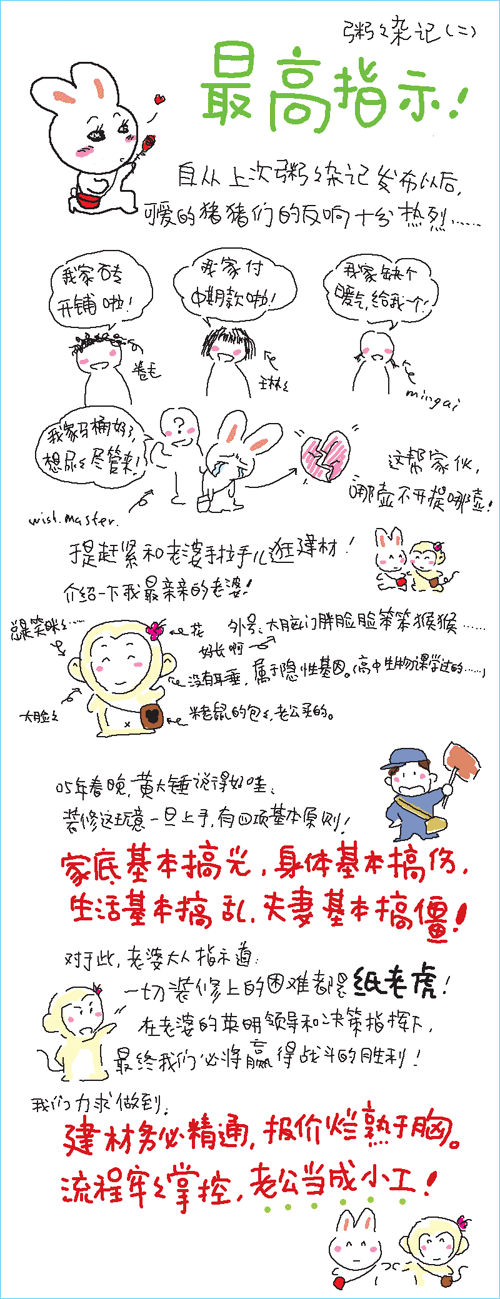 粥々杂记(二)
最高指示!
自从上次粥々杂记发布以后,
可爱的猪猪们的反响十分热烈……
我家砖
开铺啦!
我家付
中期款啦!
我家缺个
暖气,给我一个!
卷毛
王琳々
mingai
我家马桶好了,
想尿々尽管来!
?
wish.master.
这帮家伙,
哪壶不开提哪壶!
于是赶紧和老婆手拉手儿逛建材!
介绍一下我最亲亲的老婆!
总是笑眯々……
花
外号:大脑门胖脸脸笨笨猴猴……
好长啊
没有耳垂,属于隐性基因。(高中生物课学过的……)
大脸々
米老鼠的包々,老公买的。
05年春晚,黄大锤说得好哇:
装修这玩意一旦上手,有四项基本原则!
家底基本搞光,身体基本搞伤,
生活基本搞乱,夫妻基本搞僵!
对于此,老婆大人指示道:
一切装修上的困难都是纸老虎!
在老婆的英明领导和决策指挥下,
最终我们必将赢得战斗的胜利!
我们力求做到:
建材务必精通,报价烂熟于胸。
流程牢々掌控,老公当成小工!